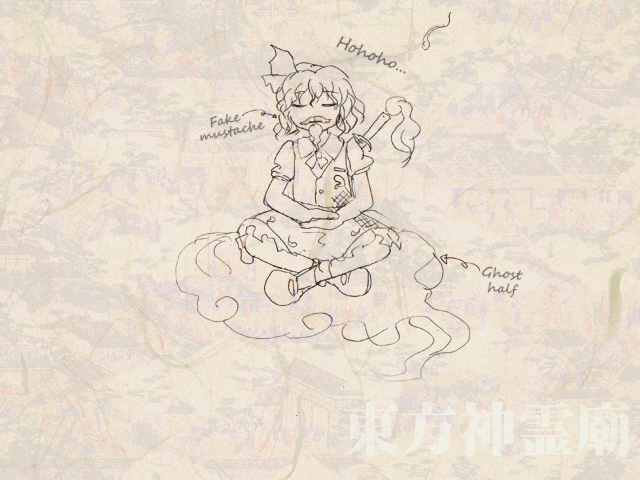 Hohoho...
Fake
mustache
Ghost
half
東方神霊廟